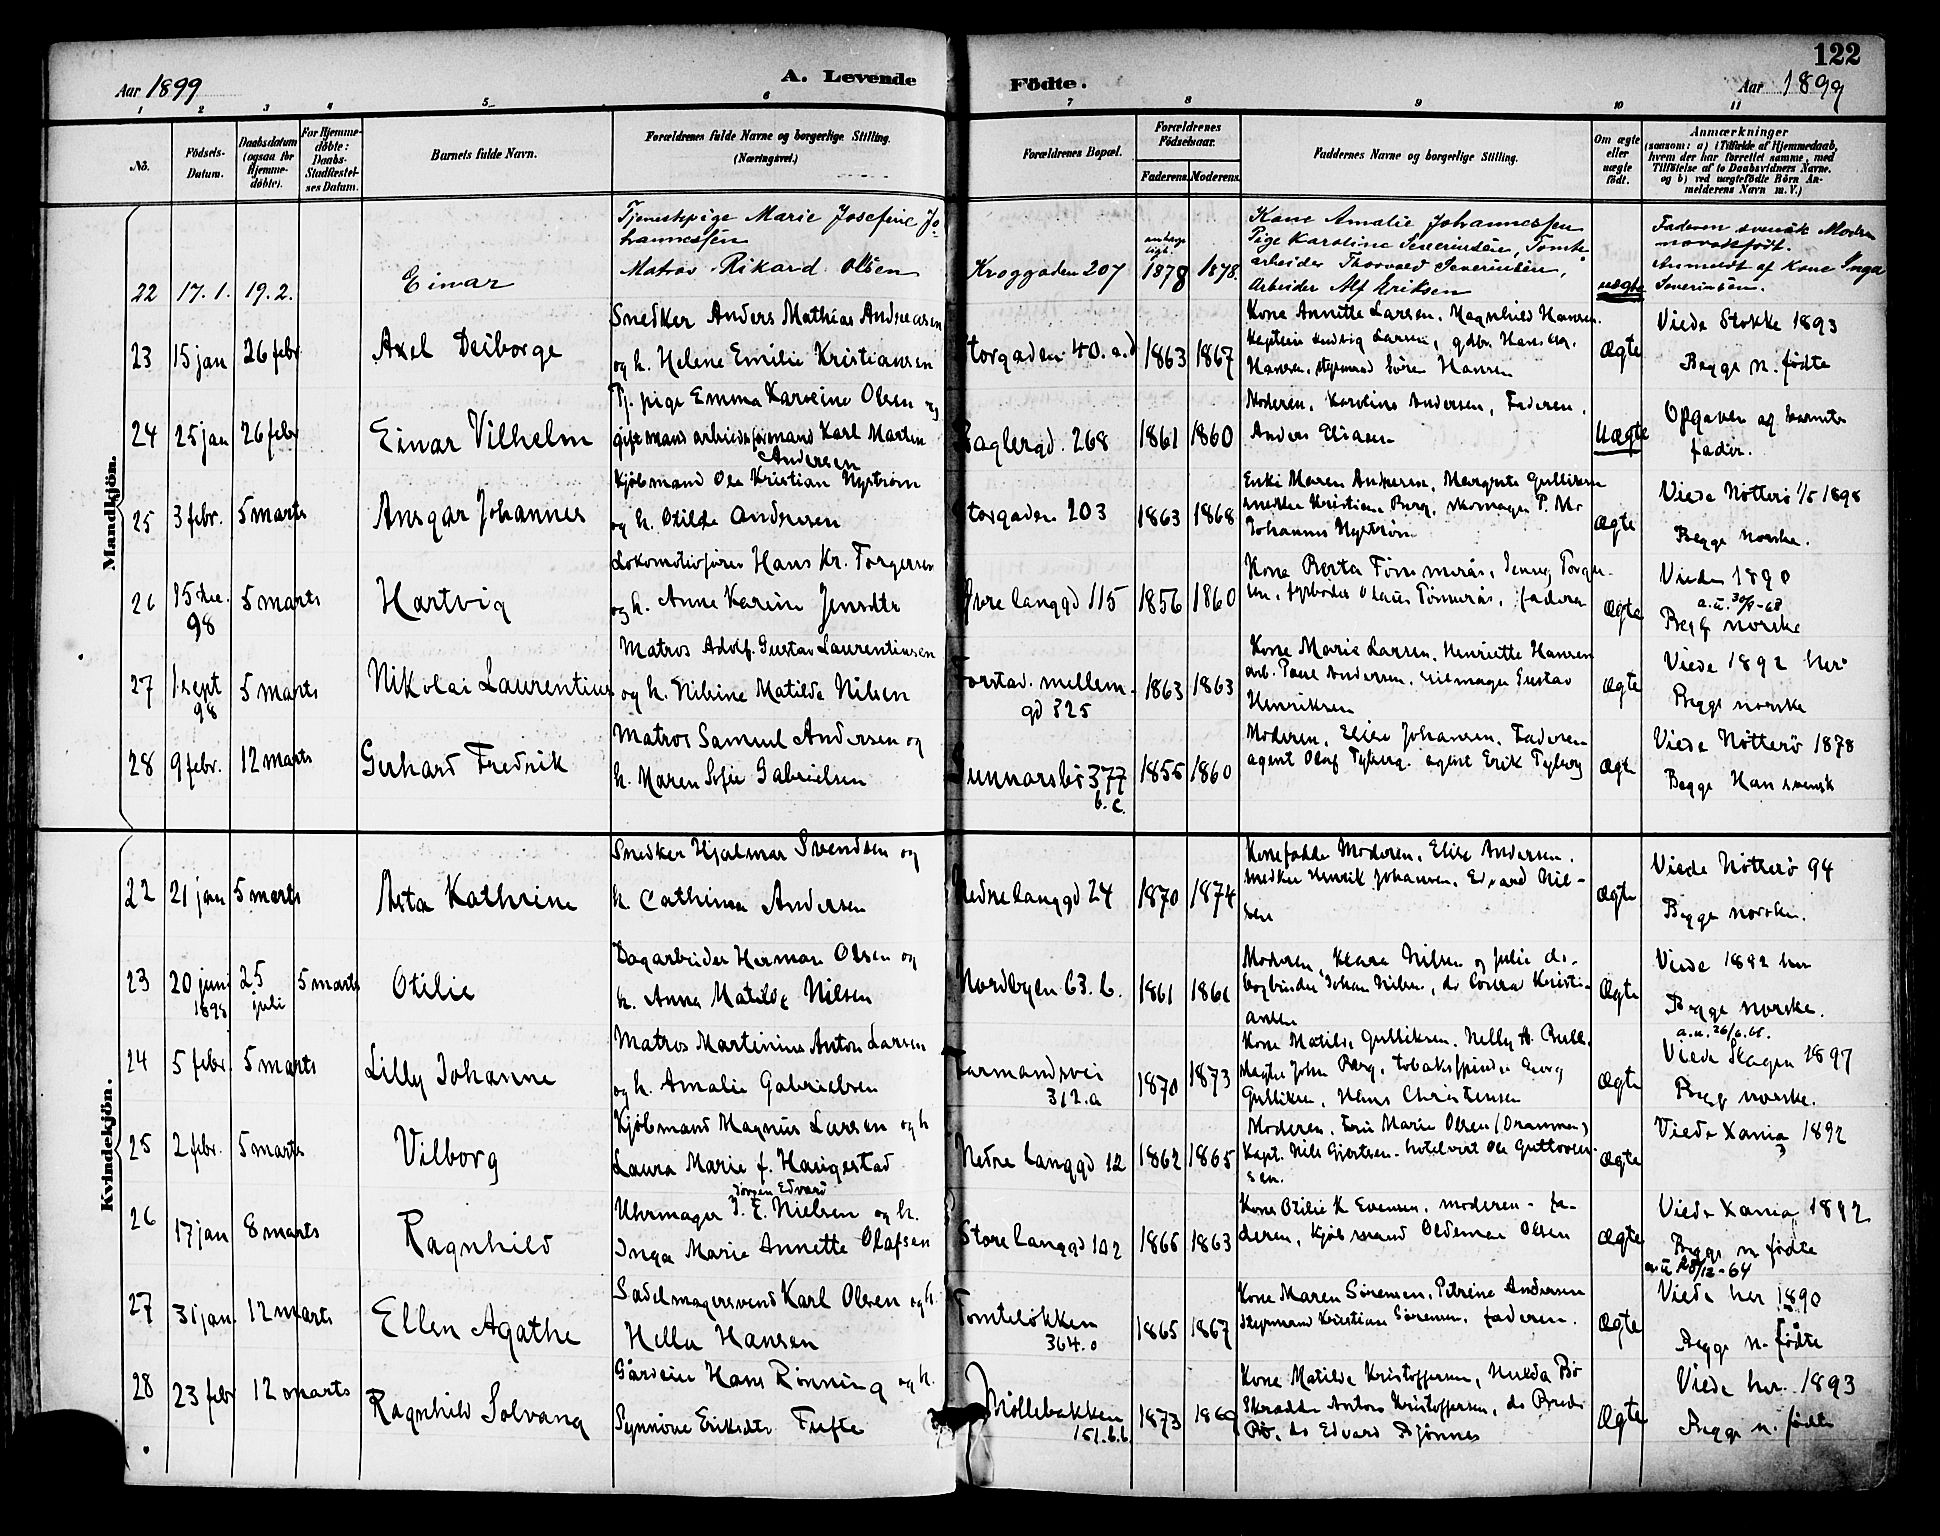 122
Aar 1899
A. Levende
Födte.
Aar 1899
1 2 3 4 5 6 7 8 9 10 11
No.
Födsels-
Datum.
Daabsdatum
(ogsaa for
Hjemme-
döbte).
For Hjemme-
döbte:
Daabs-
Stadfæstel-
ses Datum.
Barnets fulde Navn.
Forældrenes fulde Navne og borgerlige Stilling.
(Næringsvei.)
Forældrenes Bopæl.
Forældrenes
Födselsaar.
Faderens.
Moderens.
Faddernes Navne og borgerlige Stilling.
Om ægte
eller
uægte
födt.
Anmærkninger
(saasom: a) i Tilfælde af Hjemmedaab,
hvem der har forrettet samme, med
Tilföielse af to Daabsvidners Navne.
og b) ved uægtefödte Börn An-
melderens Navn m. V.)
Mandkjön.
22 17.1. 19.2.
Einar
Tjenestepige Marie Josefine Jo-
hannessen
Matros Rikard Olsen
Kroggaden 207
1878 1878.
Kone Amalie Johannessen
Pige Karoline Severinsen, Tomte-
arbeider Thorvald Severinsen,
Arbeider Alf Eriksen
uægte
Faderen svensk Moderen
norskfödt.
Anmeldt af Kone Inga
Severinsen.
23 15 jan 26 febr
Axel Deiborge
Snedker Anders Mathias Andreasen
og h. Helene Emilie Kristiansen
Storgaden 40. a.d
1863 1867
Kone Annette Larsen, Magnhild Hansen.
Kaptein Ludvig Larsen, gdbr. Hans
Hansen, styrmand Sören Hansen
ægte
Viede Stokke 1893
Begge n. födte
24 25 jan 26 febr
Einar Vilhelm
Tj. pige Emma Karoline Olsen og
gift mand arbeidsformand Karl Martin
Andersen
Baglergd. 268
1861 1860
Moderen, Karoline Andersen, Faderen,
Anders Eliasen
Uægte
Opgaven af barnets
fader.
25 3 febr. 5 marts
Ansgar Johannes
Kjöbmand Ole Kristian Nyström
og h. Otilde Andersen
Storgaden 203
1863 1868
Enke Maren Andersen, Margrete Gulliksen
snedker Kristian Berg, skomager P. M.
Johannes Nyström
ægte
Viede Nötterö 1/5 1898
Begge norske.
26 15 dec. 98 5 marts
Hartvig
Lokomotivförer Hans Kr. Torgersen
og h. Anne Karine Jensdtr
Övre langgd 115
1856 1860
Kone Berta Tömmerås, Jenny Torger-
sen, fyrböder Olaus Tömmerås, faderen
ægte
Viede 1890
a.u. 30/9-68
Begge norske
27 1 sept 98 5 marts
Nikolai Laurentius
Matros Adolf Gustav Laurentiusen
og h. Nilsine Matilde Nilsen
Forstad. mellem-
gd 325
1863 1863
Kone Marie Larsen, Henriette Hansen
arb. Paul Andersen, seilmager Gustav
Henriksen
ægte
Viede 1892 her
Begge norske
28 9 febr. 12 marts
Gerhard Fredrik
Matros Samuel Andersen og
h. Maren Sofie Gabrielsen
Gunnarsbö 377
b. c.
1855 1860
Moderen, Elise Johansen, Faderen
agent Olaf Nyberg, agent Erik Nyberg
ægte
Viede Nötterö 1878
Begge Han svensk
Kvindekjön.
22 21 jan 5 marts
Asta Kathrine
Snedker Hjalmar Svendsen og
h. Cathinca Andersen
Nedre langgd 24
1870 1874
Konefadde Moderen, Elise Andersen,
snedker Henrik Johansen, Edvard Nil-
sen
ægte
Viede Nötterö 94
Begge norske.
23 20 juni 1898 25 juli 5 marts
Otilie
Dagarbeider Herman Olsen og
h. Anna Matilde Nilsen
Nordbyen 63. b.
1861 1861
Moderen, Klara Nilsen og Julie do.
bogbinder Johan Nilsen, do Conrad Kristi-
ansen
ægte
Viede 1892 her
Begge norske.
24 5 febr. 5 marts
Lilly Johanne
Matros Martinius Anton Larsen
og h. Amalie Gabrielsen
Farmandsvei
312. a
1870 1873
Kone Matilde Gulliksen, Nelly A. Bull.
slagter John Berg, tobaksspinder Georg
Gulliksen, Hans Christensen
ægte
a.u. 26/6.61.
Viede Skagen 1897
Begge norske.
25 2 febr. 5 marts
Vilborg
Kjöbmand Magnus Larsen og h
Laura Marie f. Haugestad
Nedre langgd 12
1862 1865
Moderen, Marie Olsen (Drammen)
Kapt. Nils Gjertsen. hotelvert Ole Guttorm-
sen.
ægte
Viede Xania 1892
26 17 jan 8 marts
Ragnhild
Jörgen Edvard
Uhrmager J. E. Nielsen og h.
Inga Marie Annette Olafsen
Store langgd 102
1866 1863
Kone Otilie K Evensen, moderen - fa-
deren, Kjöbmand Oldemar Olsen
ægte
Viede Xania 1892
Begge n födte
27 31 jan. 12 marts
Ellen Agathe
Sadelmagersvend Karl Olsen og h.
Hella Hansen
Tomteløkken
364. o
1865 1867
Kone Maren Sörensen, Petrine Andersen
Styrmand Kristian Sörensen, faderen.
ægte
Viede her 1890
Begge n. födte
28 23 febr 12 marts
Ragnhild Solvang
Gårdeier Hans Rönning og h.
Synnöve Eriksdtr Tufte
Möllebakken
151. b.b.
1873 1869
Kone Matilde Kristoffersen, Hulda Bö
Skrædder Anton Kristoffersen, do Peder
Bö, do Edvard Björnnes
ægte
Viede her. 1893
Begge n. födte